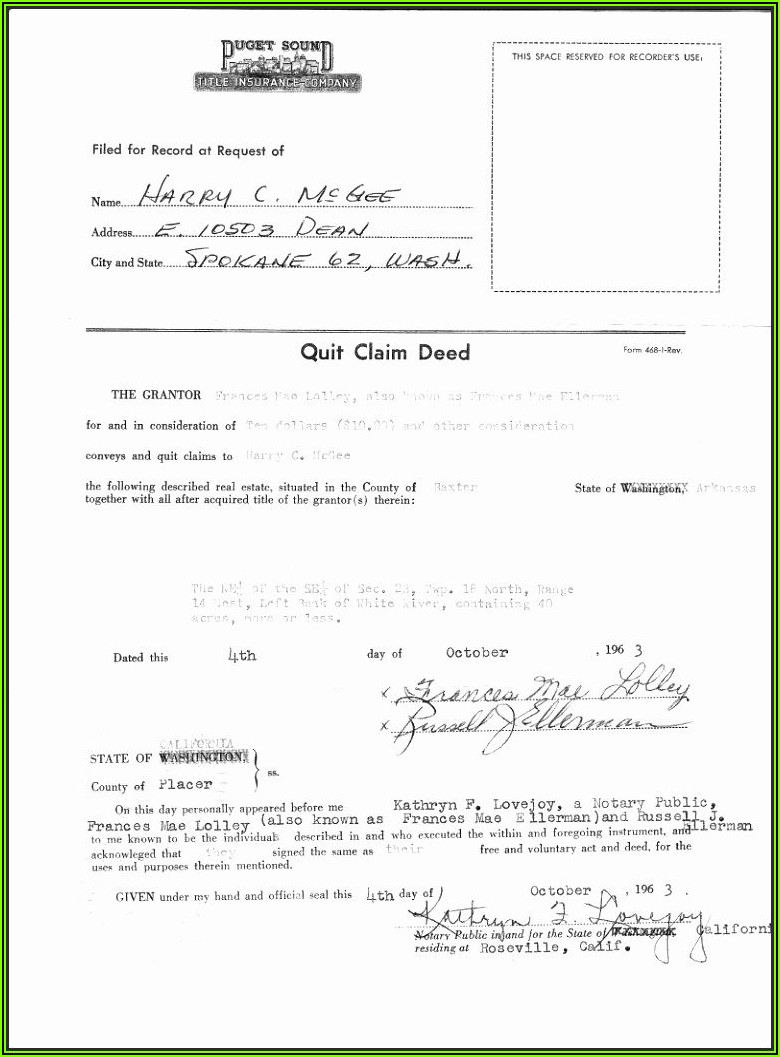 PUGET SOUND
TITLE INSURANCE COMPANY
THIS SPACE RESERVED FOR RECORDER'S USE:
Filed for Record at Request of
Name HARRY C. McGEE
Address E. 10503 DEAN
City and State SPOKANE 62, WASH.
Quit Claim Deed
Form 468-1-Rev.
THE GRANTOR Frances Mae Lolley, also known as Frances Mae Ellerman
for and in consideration of Ten dollars ($10.00) and other consideration
conveys and quit claims to Harry C. McGee
the following described real estate, situated in the County of Baxter State of Washington, Arkansas
together with all after acquired title of the grantor(s) therein:
The of the SE¼ of Sec. Twp. 18 North, Range
14 West, Left Bank of White River, containing 40
acres, more or less.
Dated this 4th day of October , 1963
x Frances Mae Lolley
x Russell J Ellerman
CALIFORNIA
STATE OF WASHINGTON,
County of Placer ss.
On this day personally appeared before me Kathryn F. Lovejoy, a Notary Public,
Frances Mae Lolley (also known as Frances Mae Ellerman) and Russell J.
Ellerman
to me known to be the individuals described in and who executed the within and foregoing instrument, and
acknowleged that they signed the same as their free and voluntary act and deed, for the
uses and purposes therein mentioned.
GIVEN under my hand and official seal this 4th day of October , 1963.
Kathryn F. Lovejoy
Notary Public in and for the State of Californi
residing at Roseville, Calif.